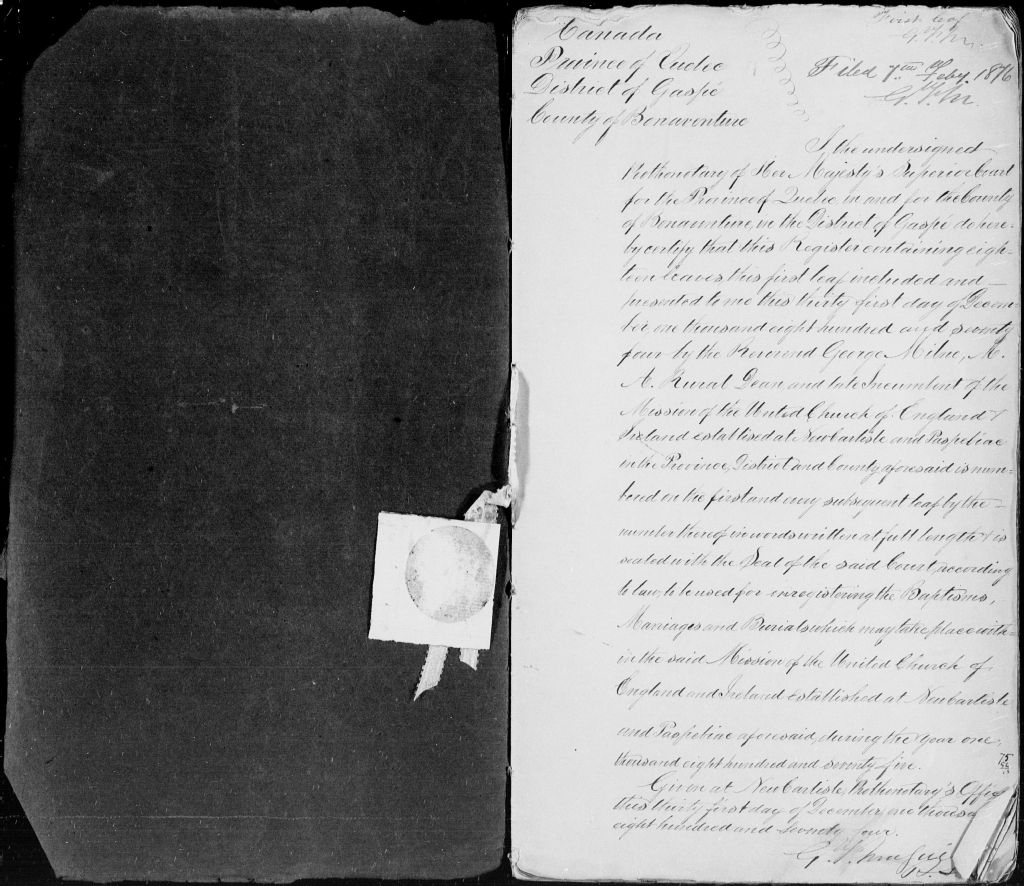 First leaf
Canada
G.F.M.
Province of Quebec
Filed 7th Feby. 1876
District of Gaspé
G.F.M.
County of Bonaventure
I, the undersigned
Prothonotary of Her Majesty's Superior Court
for the Province of Quebec in and for the County
of Bonaventure, in the District of Gaspé do here-
by certify that this Register containing eigh-
teen leaves this first leaf included and
presented to me this thirty first day of Decem-
ber, one thousand eight hundred and seventy
four by the Reverend George Milne, M.
A. Rural Dean and late Incumbent of the
Mission of the United Church of England &
Ireland established at New Carlisle and Paspebiac
in the Province, District and County aforesaid is num-
bered on the first and every subsequent leaf by the
number thereof in words written at full length & is
sealed with the Seal of the said Court, according
to law, to be used for enregistering the Baptisms,
Marriages and Burials which may take place with-
in the said Mission of the United Church of
England and Ireland established at New Carlisle
and Paspebiac aforesaid, during the year one
thousand eight hundred and seventy five.
Given at New Carlisle, Prothonotary's Office
this thirty first day of December, one thousa
eight hundred and seventy four.